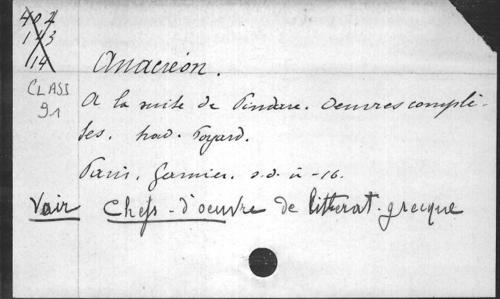 402
143
14
Anacréon.
CLASS
91
A la suite de Pindare. Oeuvres complè-
tes. trad. Poyard.
Paris, Garnier. s.d. in-16.
Voir Chefs-d'oeuvre de littérat. grecque